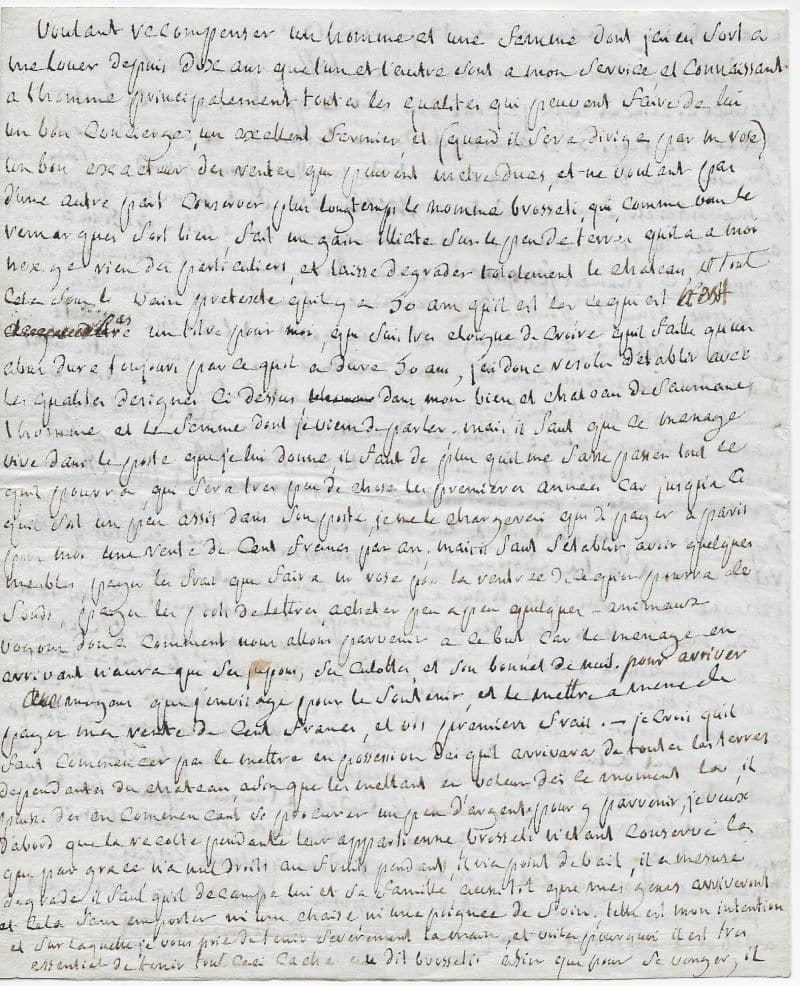 Voulant recompenser un homme et une femme dont j'ai eu fort a
me louer depuis dix ans que l'un et l'autre sont a mon service et connaissant
a l'homme principalement toutes les qualites qui peuvent faire de lui
un bon concierge, un excellent fermier, et (quand il sera dirigé par mr rose)
un bon exacteur des rentes qui peuvent m'etre dues, et ne voulant pas
d'une autre part conserver plus longtemps le nommé brosseti, qui, comme vous le
remarques fort bien, fait un gain illicite sur le peu de terres qu'il a a moi
n'exige rien des particuliers, et laisse degrader totalement le chateau et tout
cela sous le vain pretexte qu'il y a 50 ans qu'il est la ce qui est
un titre pour moi, qui suis tres eloigné de croire qu'il faille qu'un
abus dure toujours parce qu'il a duré 50 ans, j'ai donc resolu d'etablir avec
les qualites designees ci dessus dans mon bien et chateau de Saumane
l'homme et la femme dont je viens de parler. mais il faut que ce menage
vive dans le poste que je lui donne, il faut de plus qu'il me fasse passer tout ce
qu'il pourra, qui sera tres peu de chose les premieres annees car jusqu'a ce
qu'il soit un peu assis dans son poste, je ne le chargerai qu'a payer a paris
pour moi une rente de cent francs par an, mais il faut s'etablir, avoir quelques
meubles, payer les frais que faira mr rose pour la rentree de ce qu'on pourra de
fonds, payer les ports de lettres, acheter peu a peu quelques animaux
voyons donc comment nous allons parvenir a ce but car le menage en
arrivant n'aura que ses jupons, ses culottes, et son bonnet de nuit. pour arriver
aux moyens que j'envisage pour le soutenir, et le mettre a meme de
payer ma rente de cent francs, et vos premiers frais. — je crois qu'il
faut commencer par le mettre en possession des qu'il arrivera de toutes les terres
dependantes du chateau, afin que les mettant en valeur des ce moment la, il
puisse des en commencant se procurer un peu d'argent, pour y parvenir, je veux
d'abord que la recolte pendante leur appartienne brosseti n'etant conservé la
que par grace n'a nuls droits aux fruits pendants, il n'a point de bail, il a mesuré
degradé il faut qu'il decampe lui et sa famille aussitot que mes gens arriveront
et cela sans emporter ni une chaise ni une poignee de foin. telle est mon intention
et sur laquelle je vous prie de tenir severement la main, et voila pourquoi il est tres
essentiel de tenir tout ceci caché au dit brosseti afin que pour se venger, il